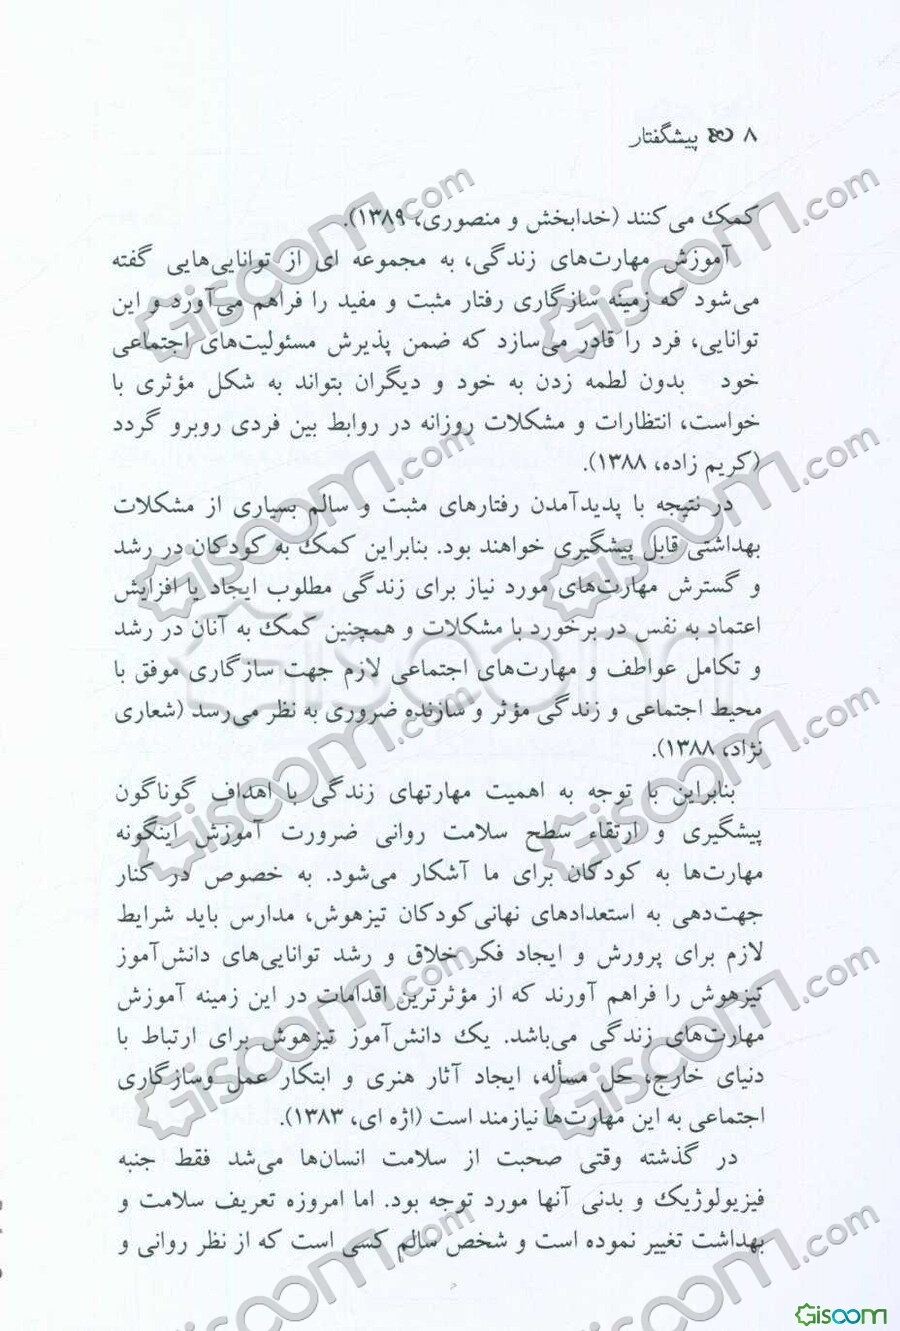 ۸ پیشگفتار
کمک می‌کنند (خدابخش و منصوری، ۱۳۸۹).
آموزش مهارت‌های زندگی، به مجموعه ای از توانایی‌هایی گفته
می‌شود که زمینه سازگاری رفتار مثبت و مفید را فراهم می‌آورد و این
توانایی، فرد را قادر می‌سازد که ضمن پذیرش مسئولیت‌های اجتماعی
خود بدون لطمه زدن به خود و دیگران بتواند به شکل مؤثری با
خواست، انتظارات و مشکلات روزانه در روابط بین فردی روبرو گردد
(کریم زاده، ۱۳۸۸).
در نتیجه با پدیدآمدن رفتارهای مثبت و سالم بسیاری از مشکلات
بهداشتی قابل پیشگیری خواهند بود. بنابراین کمک به کودکان در رشد
و گسترش مهارت‌های مورد نیاز برای زندگی مطلوب ایجاد یا افزایش
اعتماد به نفس در برخورد با مشکلات و همچنین کمک به آنان در رشد
و تکامل عواطف و مهارت‌های اجتماعی لازم جهت سازگاری موفق با
محیط اجتماعی و زندگی مؤثر و سازنده ضروری به نظر می‌رسد (شعاری
نژاد، ۱۳۸۸).
بنابراین با توجه به اهمیت مهارتهای زندگی با اهداف گوناگون
پیشگیری و ارتقاء سطح سلامت روانی ضرورت آموزش اینگونه
مهارت‌ها به کودکان برای ما آشکار می‌شود. به خصوص در کنار
جهت‌دهی به استعدادهای نهانی کودکان تیزهوش، مدارس باید شرایط
لازم برای پرورش و ایجاد فکر خلاق و رشد توانایی‌های دانش‌آموز
تیزهوش را فراهم آورند که از مؤثرترین اقدامات در این زمینه آموزش
مهارت‌های زندگی می‌باشد. یک دانش‌آموز تیزهوش برای ارتباط با
دنیای خارج، حل مسأله، ایجاد آثار هنری و ابتکار عمل وسازگاری
اجتماعی به این مهارت‌ها نیازمند است (اژه ای، ۱۳۸۳).
در گذشته وقتی صحبت از سلامت انسان‌ها می‌شد فقط جنبه
فیزیولوژیک و بدنی آنها مورد توجه بود. اما امروزه تعریف سلامت و
بهداشت تغییر نموده است و شخص سالم کسی است که از نظر روانی و
Giscom.com
Giscom